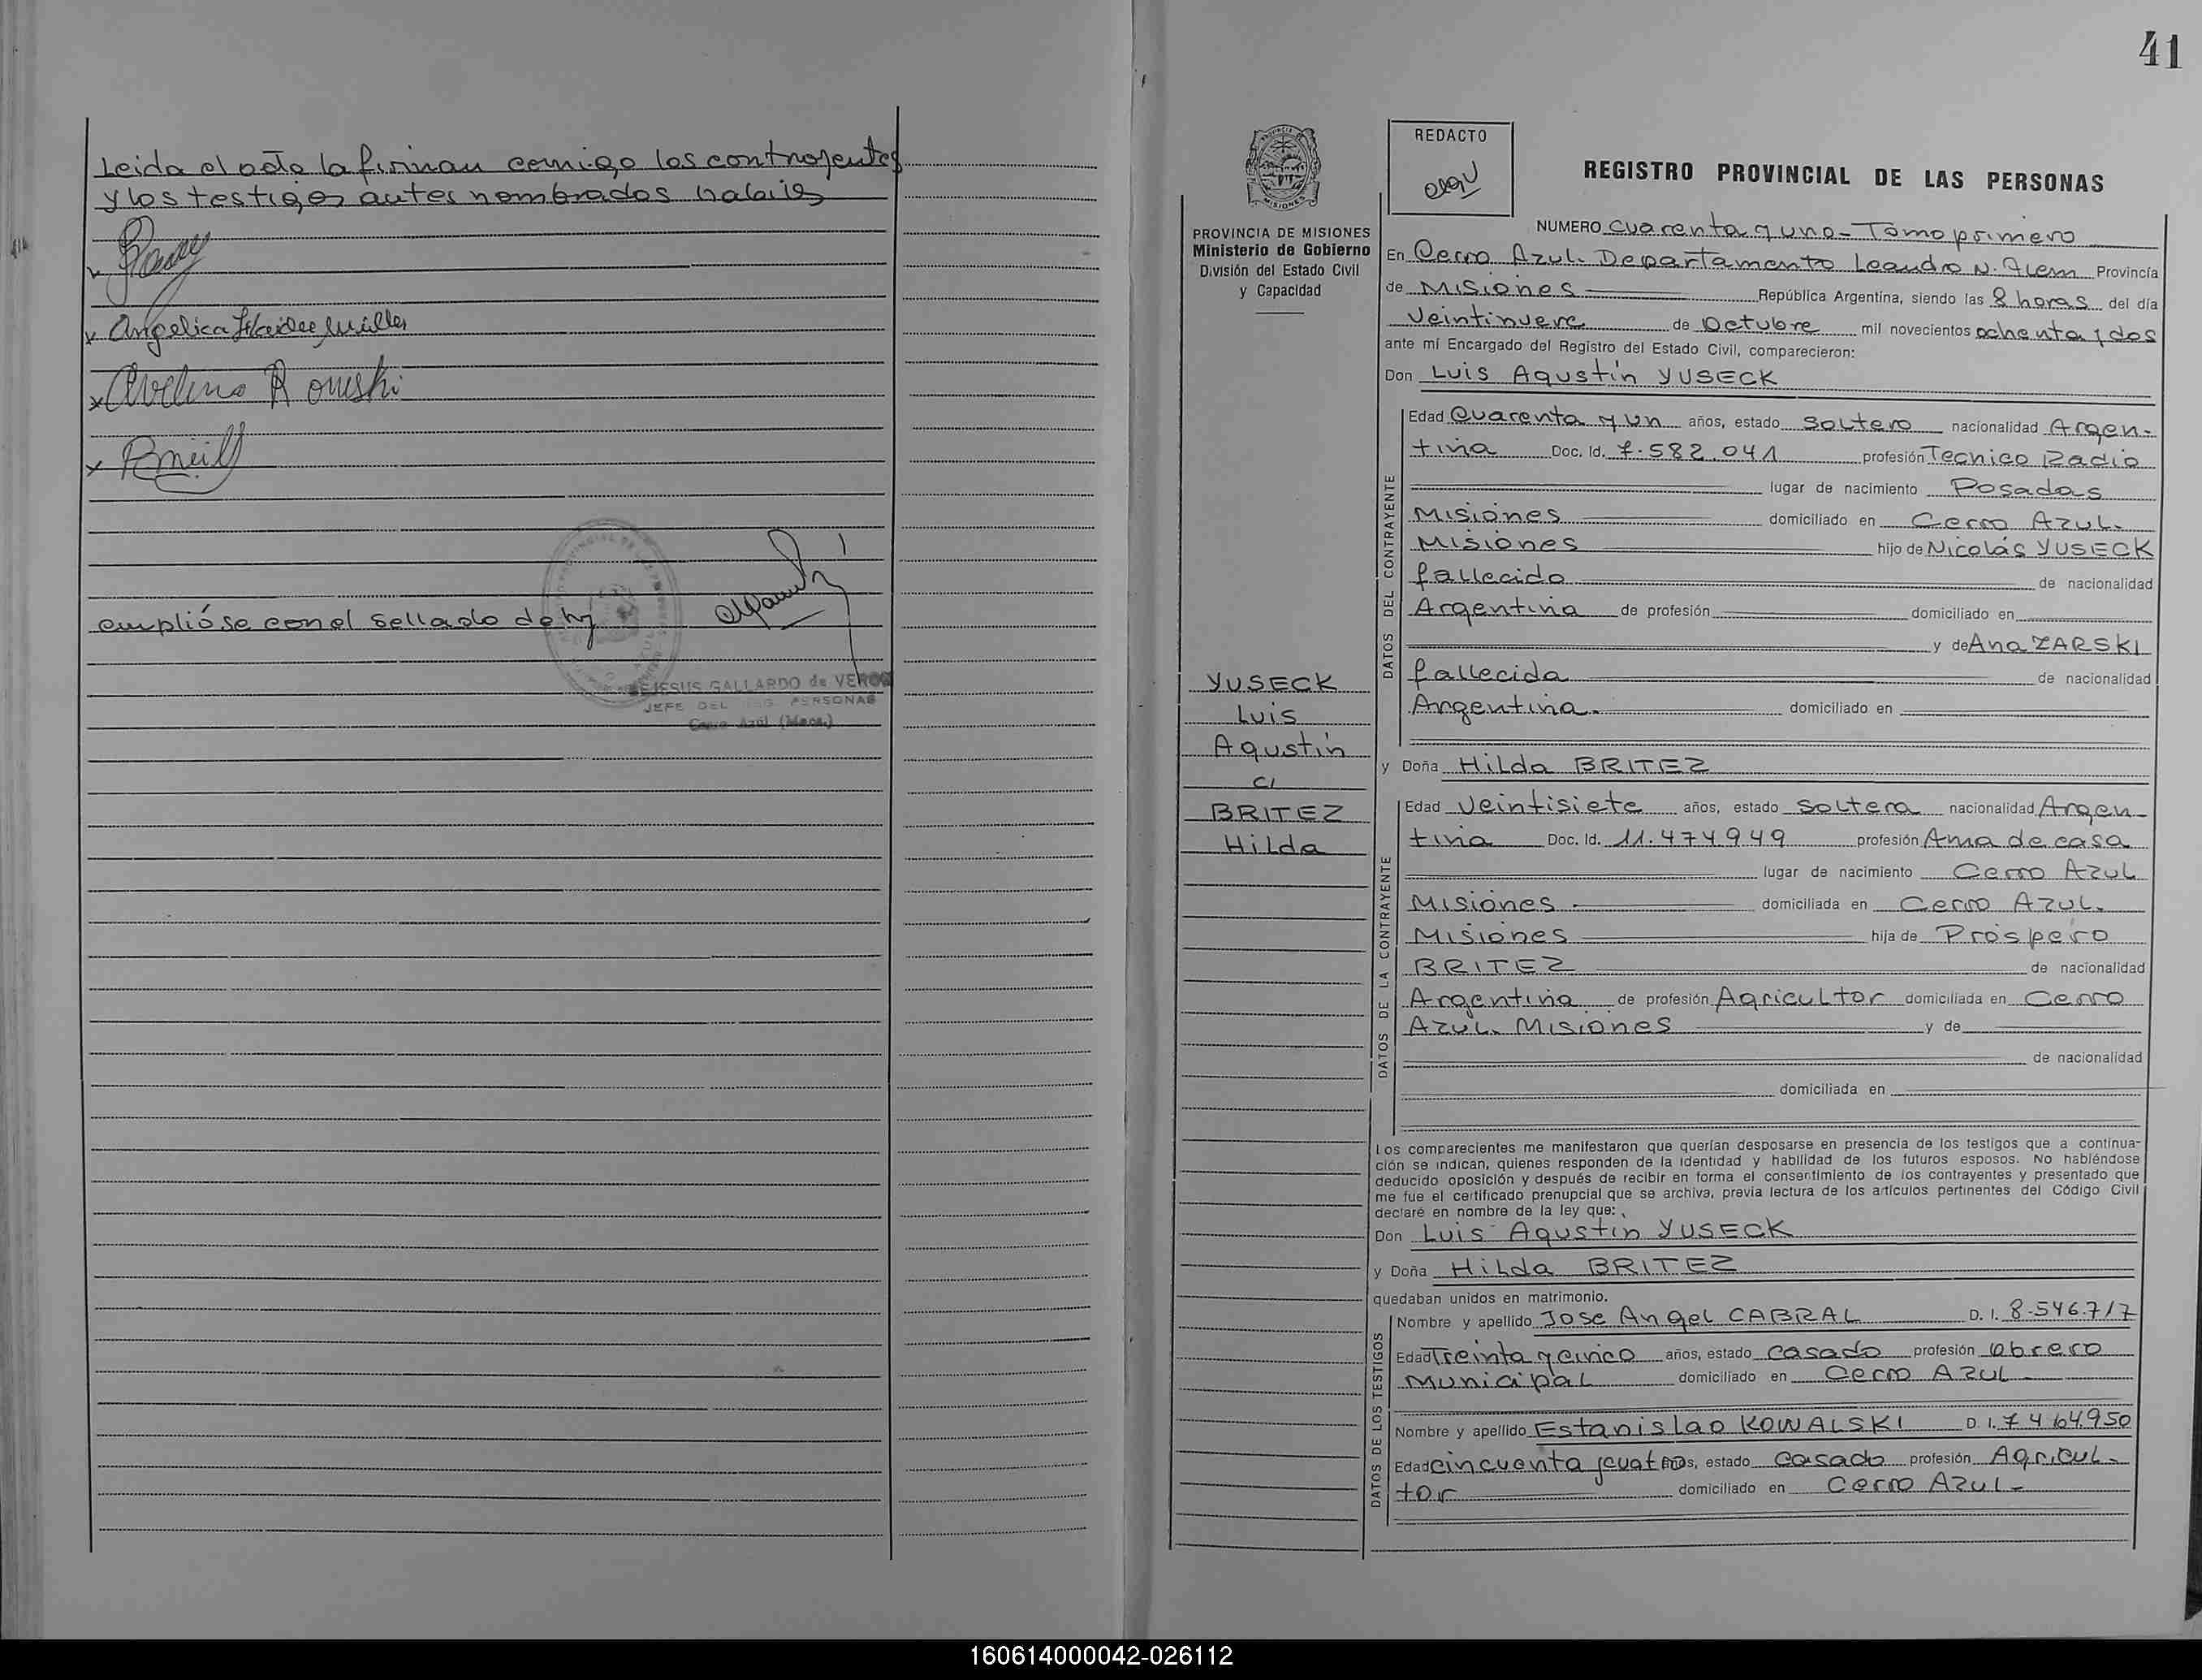 Leida el acta la firman comigo los contrayentes
y los testigos antes nombrados
Angelica Haidee Müller
Avelino
cumplióse con el sellado de ley
JESUS GALLARDO de VERON
JEFE DEL REG. PERSONAS
Cerro Azul (Mnes.)
41
REDACTO
REGISTRO PROVINCIAL DE LAS PERSONAS
PROVINCIA DE MISIONES
Ministerio de Gobierno
División del Estado Civil
y Capacidad
YUSECK
Luis
Agustín
c/
BRITEZ
Hilda
NUMERO cuarenta y uno - Tomo primero
En Cerro Azul. Departamento Leandro N. Alem Provincia
de Misiones República Argentina, siendo las 8 horas del día
Veintinueve de Octubre mil novecientos ochenta y dos
ante mí Encargado del Registro del Estado Civil, comparecieron:
Don Luis Agustín YUSECK
DATOS DEL CONTRAYENTE
Edad Cuarenta y un años, estado soltero nacionalidad Argen-
tina Doc. Id. 7.582.041 profesión Tecnico Radio
lugar de nacimiento Posadas
Misiones domiciliado en Cerro Azul.
Misiones hijo de Nicolás YUSECK
fallecido de nacionalidad
Argentina de profesión domiciliado en
y de Ana ZARSKI
fallecida de nacionalidad
Argentina. domiciliado en
y Doña Hilda BRITEZ
DATOS DE LA CONTRAYENTE
Edad Veintisiete años, estado soltera nacionalidad Argen-
tina Doc. Id. 11.474949 profesión Ama de casa
lugar de nacimiento Cerro Azul
Misiones. domiciliada en Cerro Azul.
Misiones hija de Próspero
BRITEZ de nacionalidad
Argentina de profesión Agricultor domiciliada en Cerro
Azul. Misiones y de
de nacionalidad
domiciliada en
Los comparecientes me manifestaron que querían desposarse en presencia de los testigos que a continua-
ción se indican, quienes responden de la identidad y habilidad de los futuros esposos. No habiéndose
deducido oposición y después de recibir en forma el consentimiento de los contrayentes y presentado que
me fue el certificado prenupcial que se archiva, previa lectura de los artículos pertinentes del Código Civil
declaré en nombre de la ley que:
Don Luis Agustín YUSECK
y Doña Hilda BRITEZ
quedaban unidos en matrimonio.
DATOS DE LOS TESTIGOS
Nombre y apellido Jose Angel CABRAL D. I. 8.546.717
Edad Treinta y cinco años, estado casado profesión obrero
Municipal domiciliado en Cerro Azul
Nombre y apellido Estanislao KOWALSKI D. I. 7464.950
Edad cincuenta y cuatro años, estado casado profesión Agricul-
tor domiciliado en Cerro Azul.
160614000042-026112